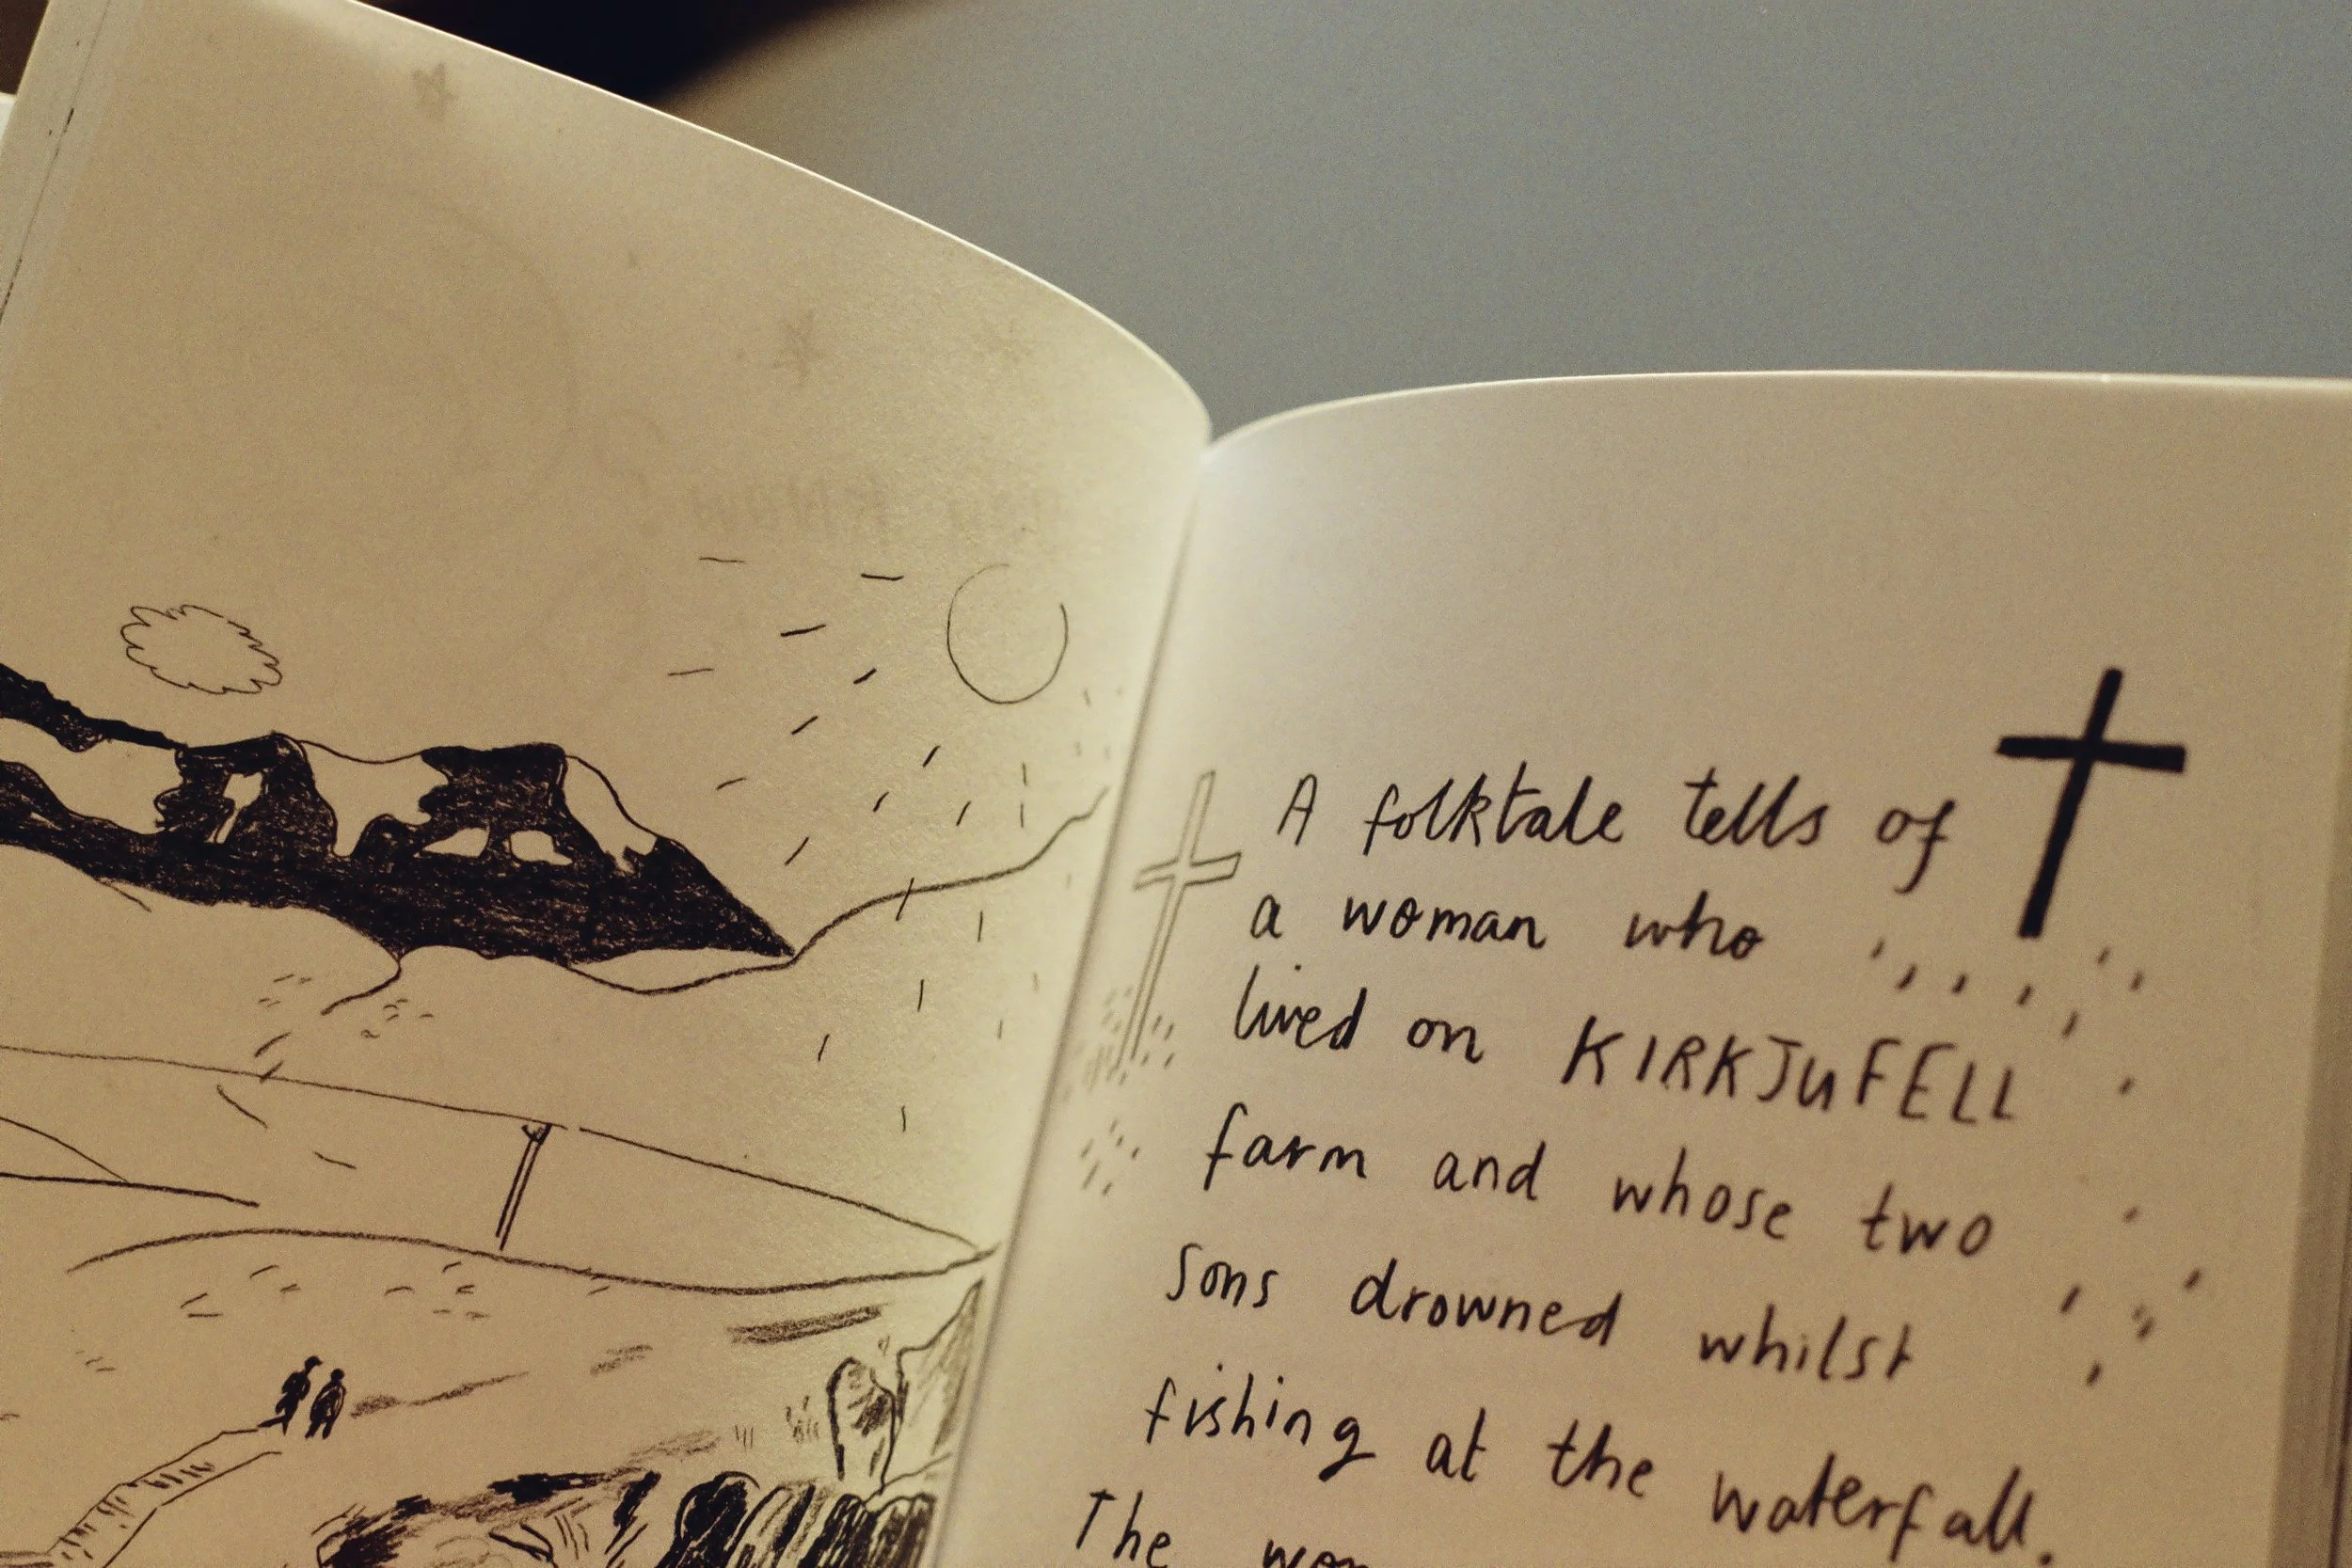 A folktale tells of
a woman who
lived on KIRKJUFELL
farm and whose two
sons drowned whilst
fishing at the waterfall.
The